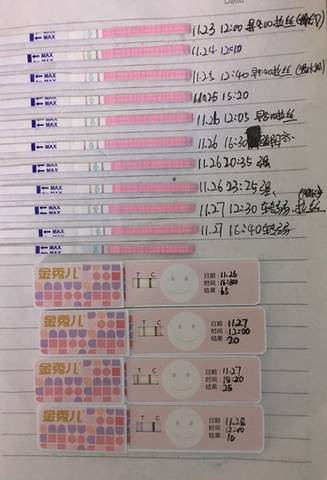 MAX 11.23 12:00
MAX 11.24 12:10
MAX 11.25 12:40
MAX 11.25 15:20
MAX 11.26 12:05
MAX 11.26 16:30
MAX 11.26 20:35 强
MAX 11.26 23:25 强
MAX 11.27 12:30 转弱
MAX 11.27 16:40 转弱
MAX
金秀儿 T C 日期: 11.26
时间: 16:30
结果: 65
金秀儿 T C 日期: 11.27
时间: 12:00
结果: 20
金秀儿 T C 日期: 11.27
时间: 18:20
结果: 25
金秀儿 T C 日期: 11.28
时间: 12:00
结果: 10